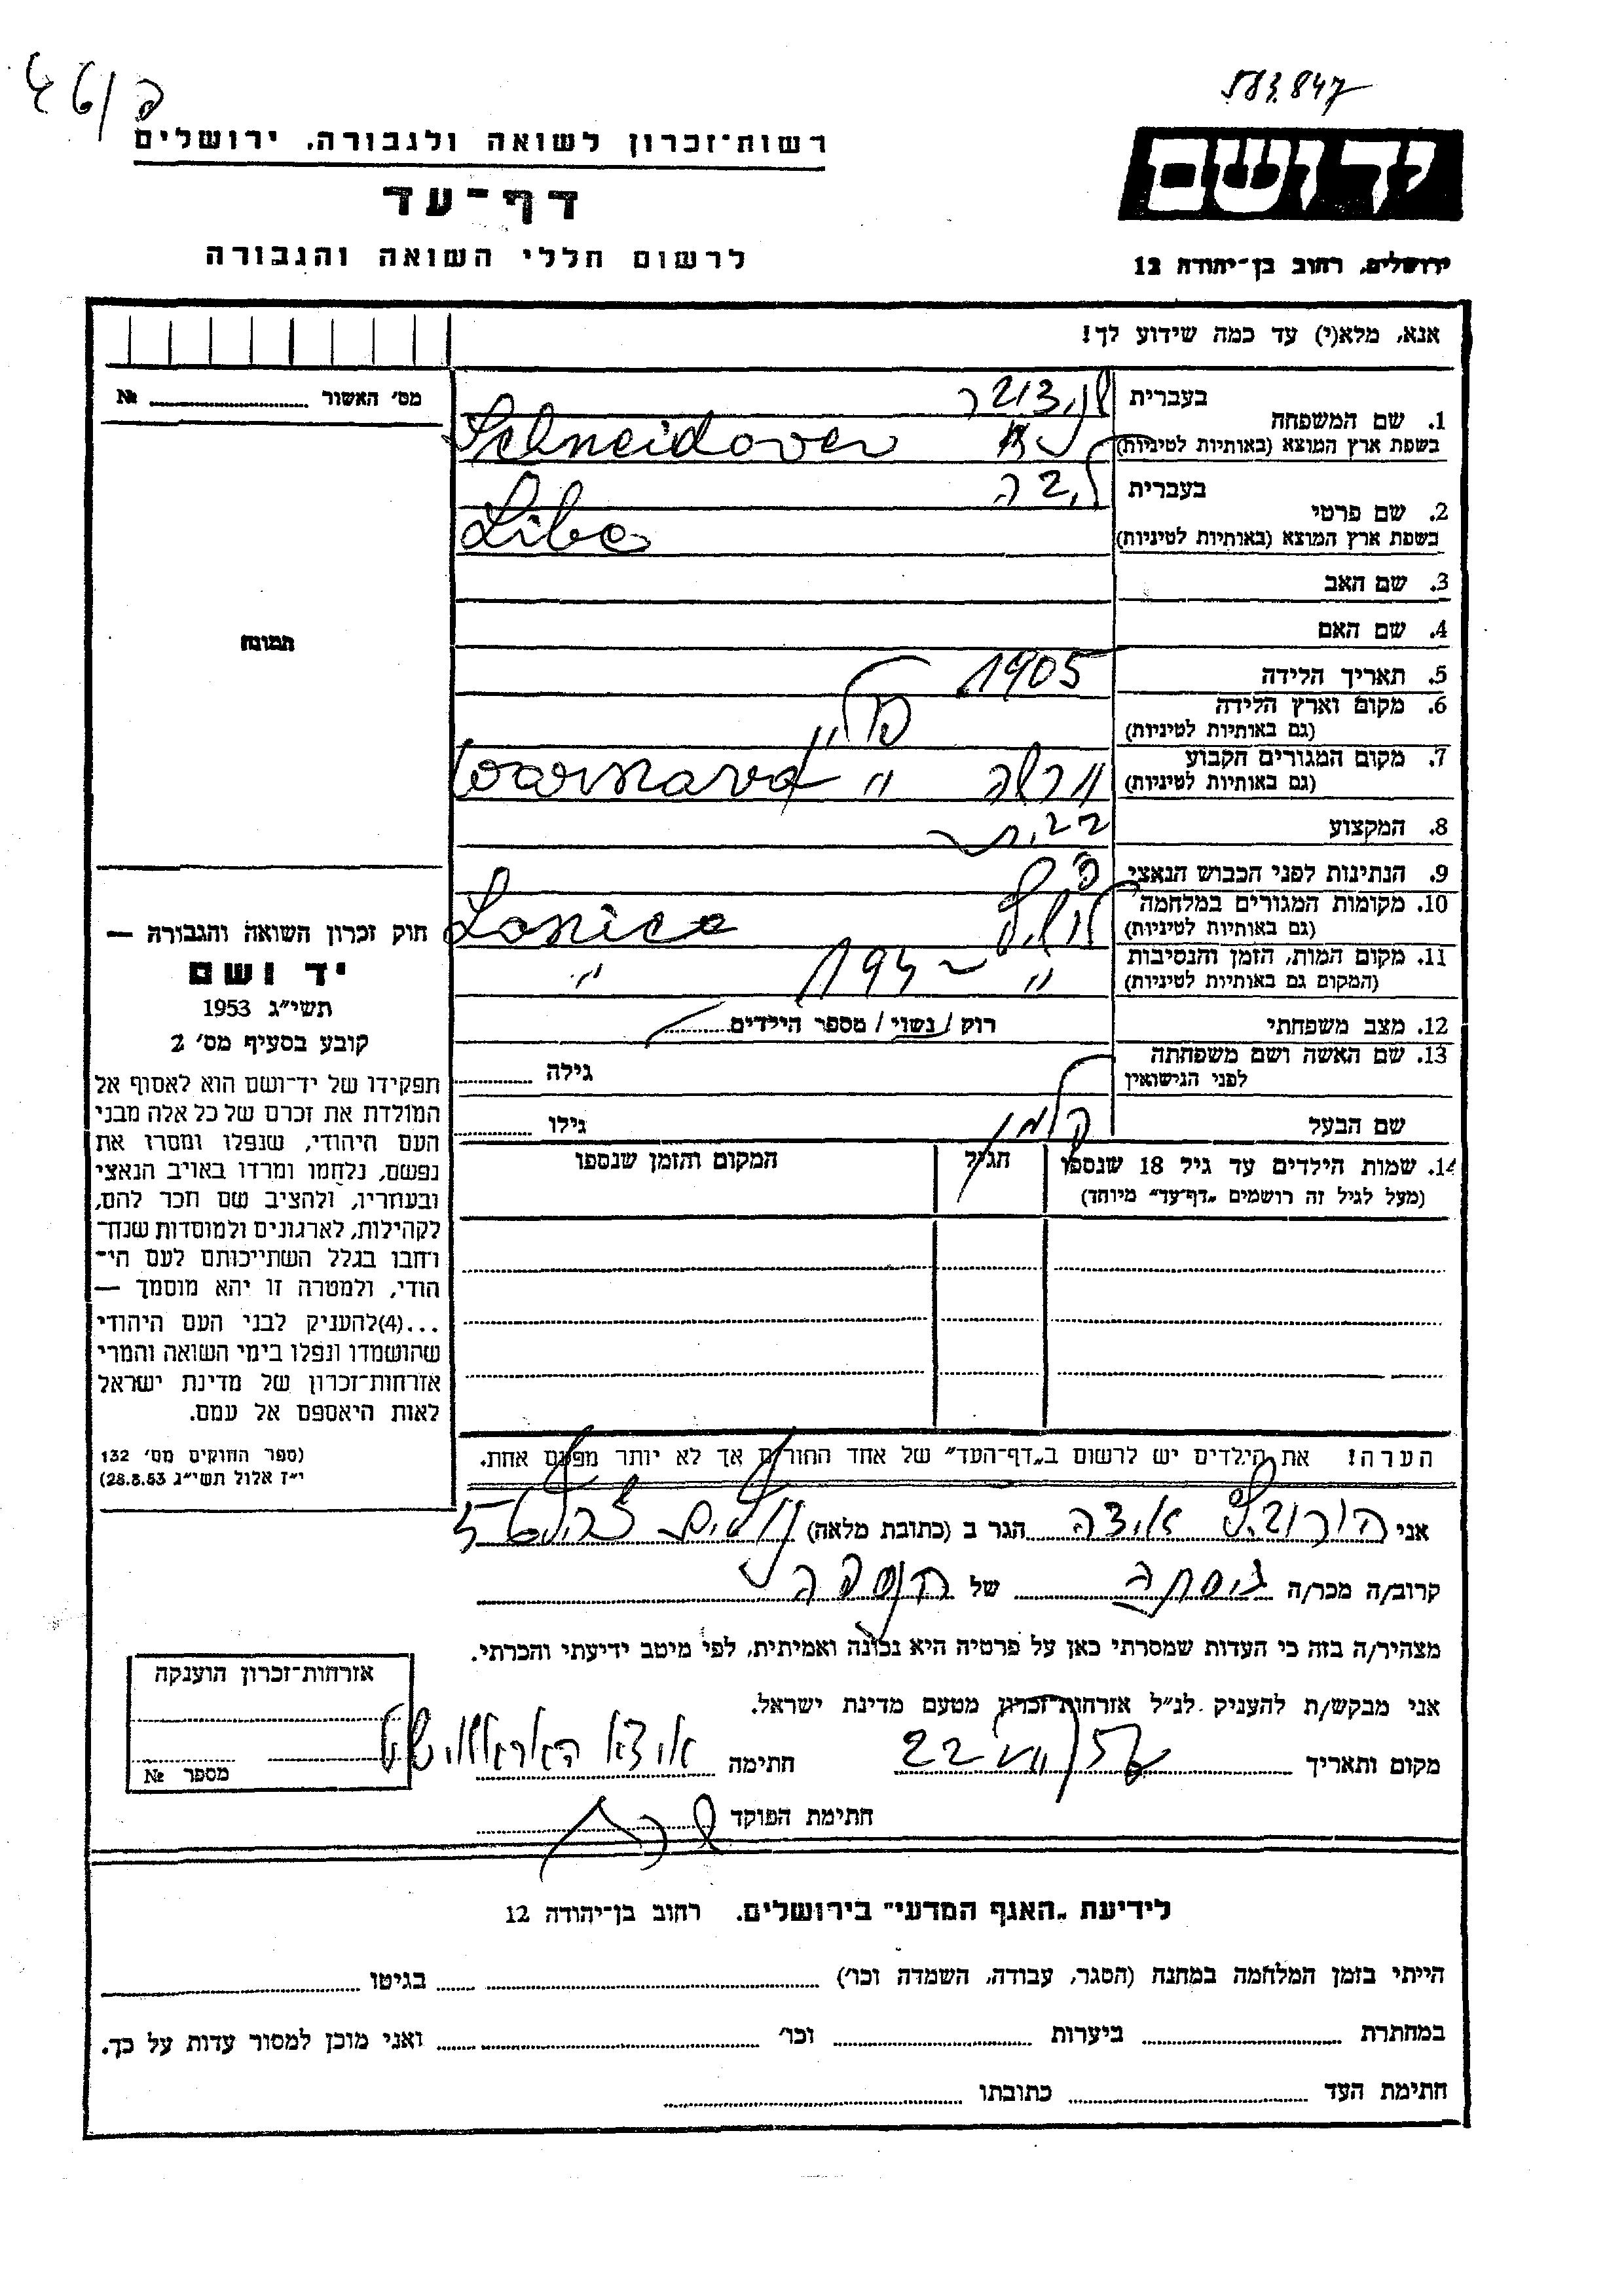 583.847
רשות־זכרון לשואה ולגבורה. ירושלים
יד ושם
דף־עד
לרשום חללי השואה והגבורה
ירושלים, רחוב בן־יהודה 12
אנא, מלא(י) עד כמה שידוע לך!
מס׳ האשור № 
בעברית
1. שם המשפחה
בשפת ארץ המוצא (באותיות לטיניות) Schneidover
בעברית ליבה
2. שם פרטי
בשפת ארץ המוצא (באותיות לטיניות) Liba
3. שם האב
4. שם האם
תמונה
5. תאריך הלידה 1905
6. מקום וארץ הלידה פולין
(גם באותיות לטיניות)
7. מקום המגורים הקבוע ורשה " Warszawa
(גם באותיות לטיניות)
8. המקצוע
9. הנתינות לפני הכבוש הנאצי
10. מקומות המגורים במלחמה
(גם באותיות לטיניות)
11. מקום המות, הזמן והנסיבות " "
(המקום גם באותיות לטיניות)
12. מצב משפחתי רוק / נשוי / מספר הילדים
13. שם האשה ושם משפחתה
לפני הנישואין
גילה
שם הבעל קלמן גילו
14. שמות הילדים עד גיל 18 שנספו הגיל המקום והזמן שנספו
(מעל לגיל זה רושמים „דף־עד” מיוחד)
חוק זכרון השואה והגבורה —
יד ושם
תשי״ג 1953
קובע בסעיף מס׳ 2
תפקידו של יד־ושם הוא לאסוף אל
המולדת את זכרם של כל אלה מבני
העם היהודי, שנפלו ומסרו את
נפשם, נלחמו ומרדו באויב הנאצי
ובעוזריו, ולהציב שם וזכר להם,
לקהילות, לארגונים ולמוסדות שנח־
רבו בגלל השתייכותם לעם הי־
הודי, ולמטרה זו יהא מוסמך —
...(4)להעניק לבני העם היהודי
שהושמדו ונפלו בימי השואה והמרי
אזרחות־זכרון של מדינת ישראל
לאות היאספם אל עמם.
(ספר החוקים מס׳ 132
י״ז אלול תשי״ג 28.8.53)
הערה! את הילדים יש לרשום ב„דף־העד” של אחד ההורים אך לא יותר מפעם אחת.
אני הורוביץ איצה הגר ב (כתובת מלאה)
קרוב/ה מכר/ה גיסתה של הנספה
מצהיר/ה בזה כי העדות שמסרתי כאן על פרטיה היא נכונה ואמיתית, לפי מיטב ידיעתי והכרתי.
אני מבקש/ת להעניק לנ״ל אזרחות־זכרון מטעם מדינת ישראל.
מקום ותאריך חתימה
חתימת הפוקד
אזרחות־זכרון הוענקה
מספר №
לידיעת „האגף המדעי” בירושלים. רחוב בן־יהודה 12
הייתי בזמן המלחמה במחנה (הסגר, עבודה, השמדה וכו׳) בגיטו
במחתרת ביערות וכו׳ ואני מוכן למסור עדות על כך.
חתימת העד כתובתו